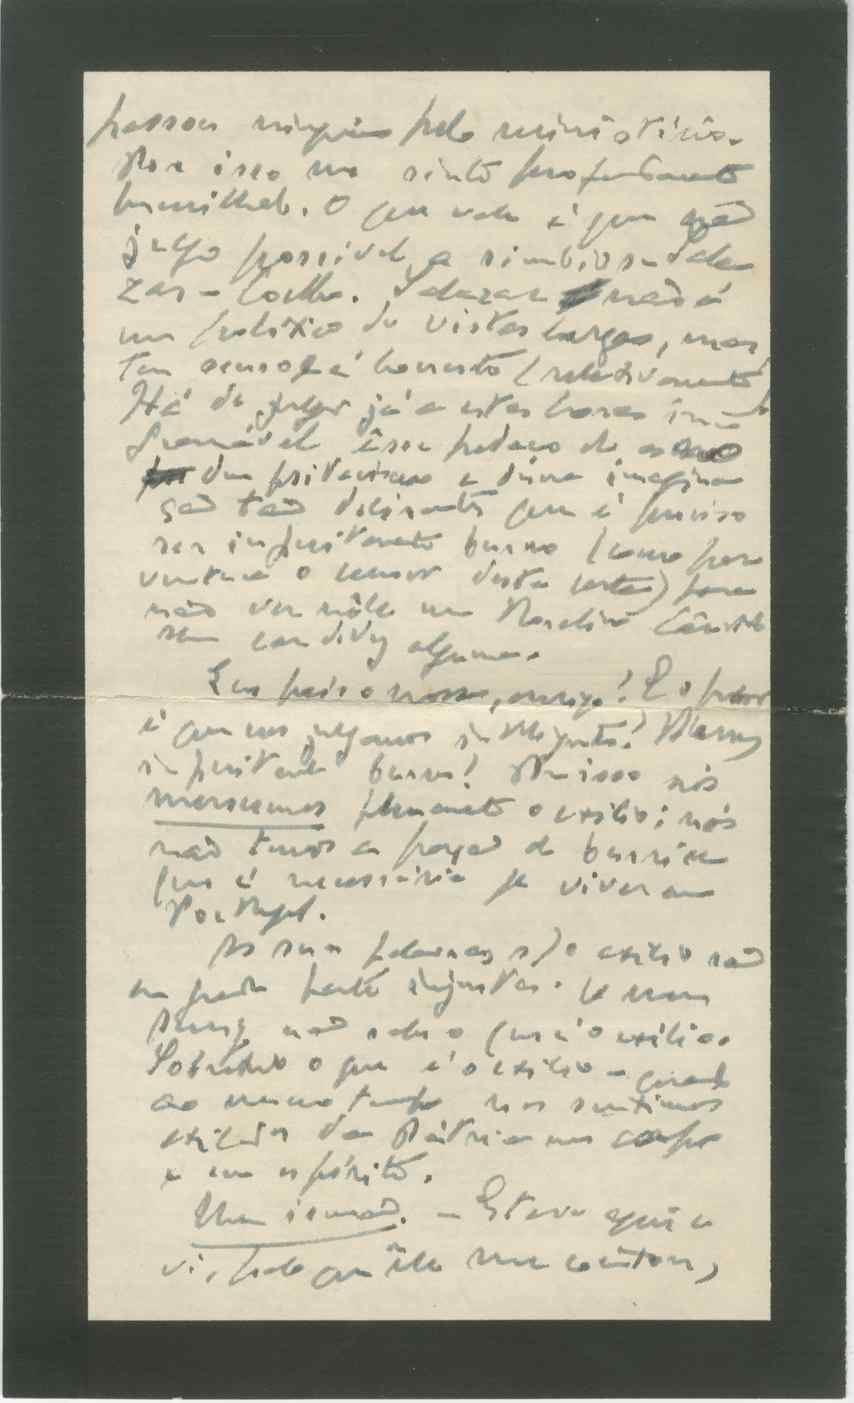 passou ninguém pelo ministério.
Por isso me sinto profundamente
humilhado. O que vale é que não
julgo possível a simbiose Sala-
zar – Coelho. Salazar não é
um político de vistas largas, mas
tem senso e é honesto (relativamente)
Há de julgar já a estas horas
êsse pedaço de asno
dum e duma imagina-
ção tão delirante que é preciso
ser infinitamente burro (como por-
ventura o censor desta carta) para
não ver nêle um
sem dúvida alguma.
Que país o nosso, amigo! E o pior
é que nos julgamos inteligentes! Vilmente,
infinitamente burros! Por isso nós
merecemos plenamente o exílio; nós
não temos a porção de burrice
que é necessária p.a viver em
Portugal.
As suas palavras s/ o exílio são
em grande parte injustas. V. nem
sequer não sabe o que é o exílio.
Sobretudo o que é o exílio – quando
ao mesmo tempo nos sentimos
exilados da Pátria em corpo
e em espírito.
Meu irmão. – Estava aqui a
visita que êle me contou,